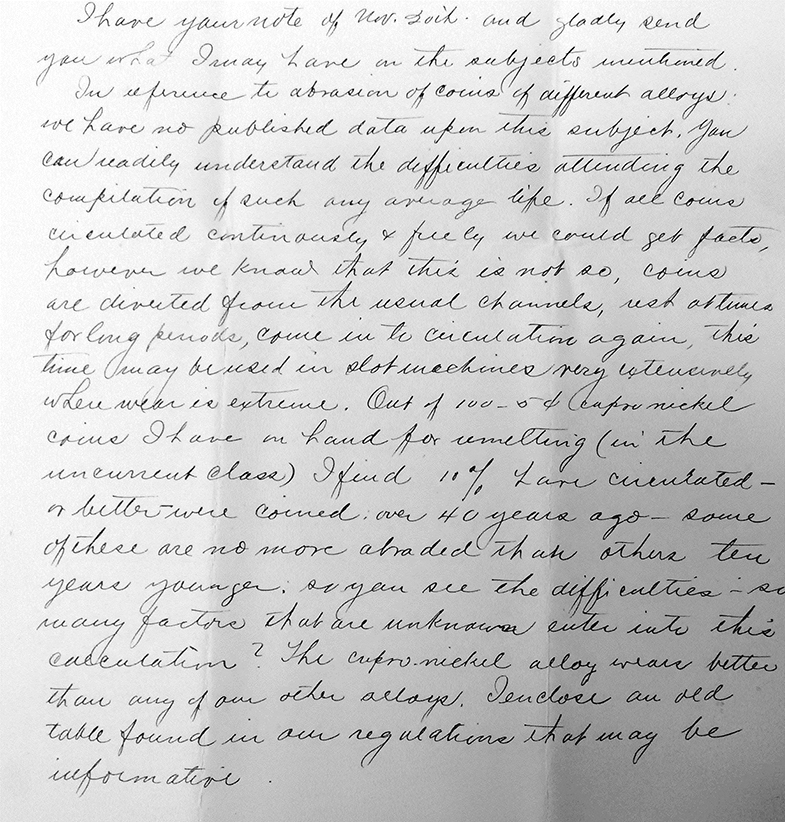 I have your note of Nov. 20th. and gladly send
you what I may have on the subjects mentioned.
In reference to abrasion of coins of different alloys:
we have no published data upon this subject. You
can readily understand the difficulties attending the
compilation of such any average life. If all coins
circulated continously & freely we could get facts,
however we know that this is not so, coins
are diverted from the usual channels, rest at times
for long periods, come in to circulation again, this
time may be used in slot machines very extensively
where wear is extreme. Out of 100 - 5¢ cupro nickel
coins I have on hand for remelting (in the
uncurrent class) I find 10% have circulated -
or better were coined: over 40 years ago - some
of these are no more abraded than others ten
years younger. so you see the difficulties - so
many factors that are unknown enter into this
calculation? The cupro-nickel alloy wears better
than any of our other alloys. I enclose an old
table found in our regulations that may be
informative.